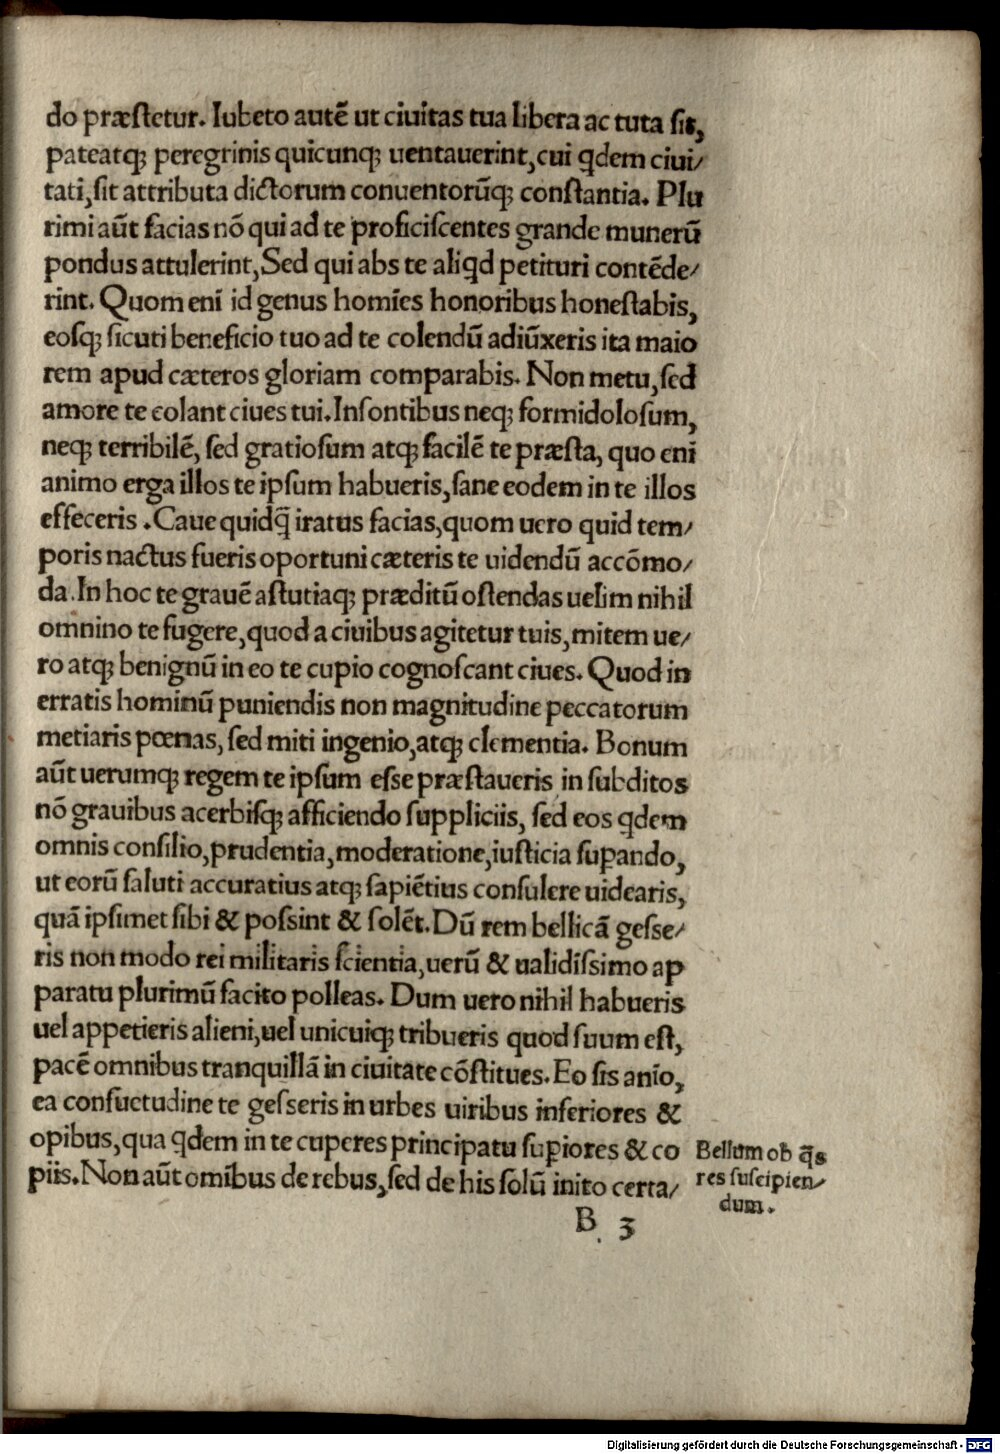 do præstetur. Iubeto autē ut ciuitas tua libera ac tuta sit,
pateatq; peregrinis quicunq; uentauerint, cui qdem ciui/
tati, sit attributa dictorum conuentorūq; constantia. Plu
rimi aūt facias nō qui ad te proficiscentes grande munerū
pondus attulerint, Sed qui abs te aliqd petituri contēde/
rint. Quom eni id genus homīes honoribus honestabis,
eosq; sicuti beneficio tuo ad te colendū adiūxeris ita maio
rem apud cæteros gloriam comparabis. Non metu, sed
amore te colant ciues tui. Insontibus neq; formidolosum,
neq; terribilē, sed gratiosum atq; facilē te præsta, quo eni
animo erga illos te ipsum habueris, sane eodem in te illos
effeceris . Caue quidq̄ iratus facias, quom uero quid tem/
poris nactus fueris oportuni cæteris te uidendū accōmo/
da. In hoc te grauē astutiaq; præditū ostendas uelim nihil
omnino te fugere, quod a ciuibus agitetur tuis, mitem ue/
ro atq; benignū in eo te cupio cognoscant ciues. Quod in
erratis hominū puniendis non magnitudine peccatorum
metiaris pœnas, sed miti ingenio, atq; clementia. Bonum
aūt uerumq; regem te ipsum esse præstaueris in subditos
nō grauibus acerbisq; afficiendo suppliciis, sed eos qdem
omnis consilio, prudentia, moderatione, iusticia suꝑando,
ut eorū saluti accuratius atq; sapiētius consulere uidearis,
quā ipsimet sibi & possint & solēt. Dū rem bellicā gesse/
ris non modo rei militaris scientia, uerū & ualidissimo ap
paratu plurimū facito polleas. Dum uero nihil habueris
uel appetieris alieni, uel unicuiq; tribueris quod suum est,
pacē omnibus tranquillā in ciuitate cōstitues. Eo sis anīo,
ea consuetudine te gesseris in urbes uiribus inferiores &
opibus, qua qdem in te cuperes principatu suꝑiores & co
piis. Non aūt omībus de rebus, sed de his solū inito certa/
Bellum ob q̄s
res suscipien/
dum.
B 3
Digitalisierung gefördert durch die Deutsche Forschungsgemeinschaft - DFG